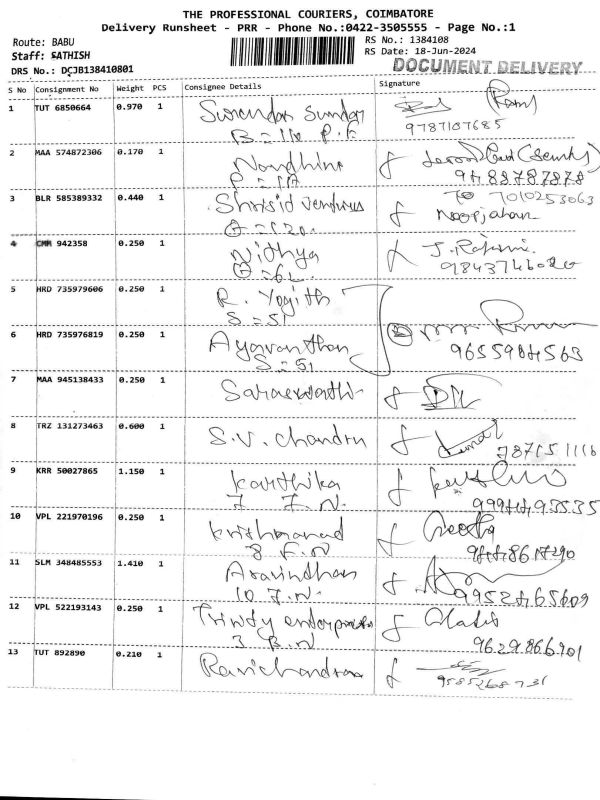 THE PROFESSIONAL COURIERS, COIMBATORE
Delivery Runsheet - PRR - Phone No.:0422-3505555 - Page No.:1
Route: BABU
RS No.: 1384108
Staff: SATHISH
RS Date: 18-Jun-2024
DRS No.: DCJB138410801
DOCUMENT DELIVERY
S No Consignment No Weight PCS Consignee Details Signature
1 TUT 6850664 0.970 1 Surendar Sundar
9787107685
2 MAA 574872306 0.170 1 Nandhini
9488787878
3 BLR 585389332 0.440 1
7010253063
Noorjahan
4 CMM 942358 0.250 1 Nithya J. Rajini
9843746020
5 HRD 735979606 0.250 1 R. Yogith
S = 51
6 HRD 735976819 0.250 1
S = 51 9655984563
7 MAA 945138433 0.250 1 Saraswathi
8 TRZ 131273463 0.600 1 S.V. Chandru
787151116
9 KRR 50027865 1.150 1 Karthika
7 F.N. 9994493535
10 VPL 221970196 0.250 1
8 F.N 9448617290
11 SLM 348485553 1.410 1 Aravindhan
10 F.N. 9952465609
12 VPL 522193143 0.250 1 Trinity enterprises
3 B.N 9629866901
13 TUT 892890 0.210 1 Ravichandran
9585268731